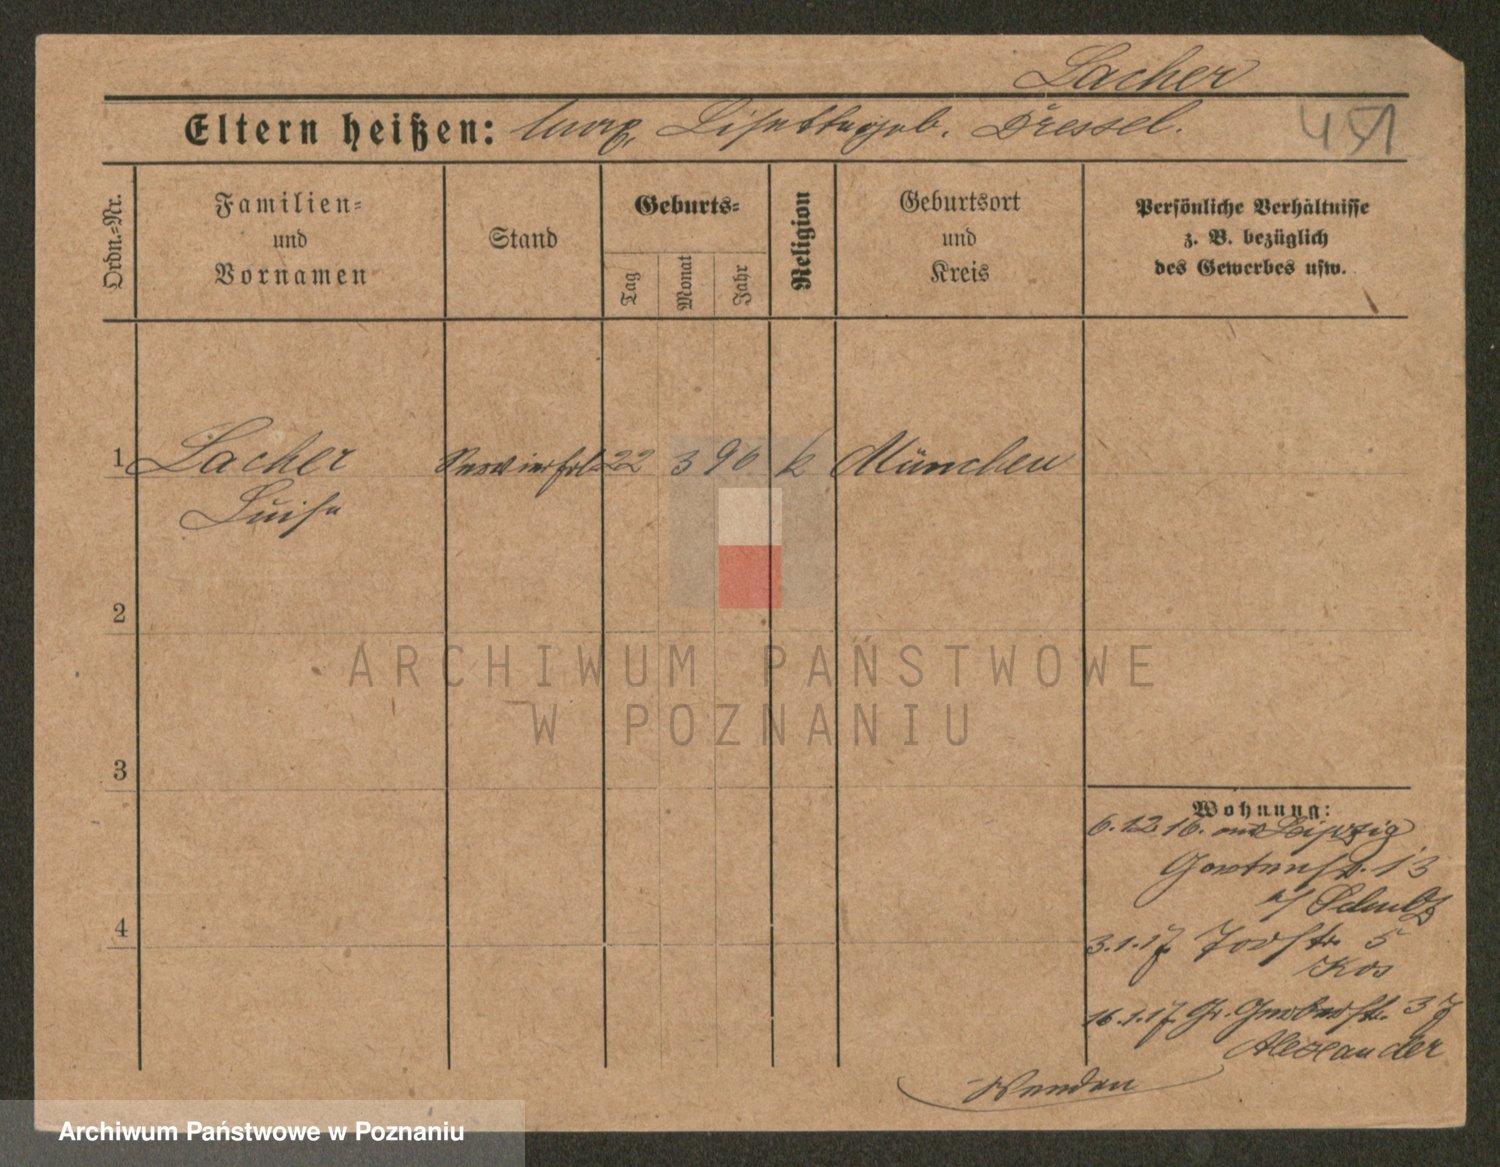 Lacher
Eltern heißen: Lisette geb. Dressel.
451
Ordn.-Nr.
Familien-
und
Vornamen
Stand
Geburts-
Tag
Monat
Jahr
Religion
Geburtsort
und
Kreis
Persönliche Verhältnisse
z. B. bezüglich
des Gewerbes usw.
1 Lacher Servierfrl. 22 3 96 k München
Luise
2
3
4
ARCHIWUM PAŃSTWOWE
W POZNANIU
Wohnung:
6.12.16. aus Leipzig
Gartenstr. 13
b/ Schulz
3.1.17. Torstr. 5
Kos
16.1.17. Gr. Gerberstr. 37
Alexander
Wenden
Archiwum Państwowe w Poznaniu